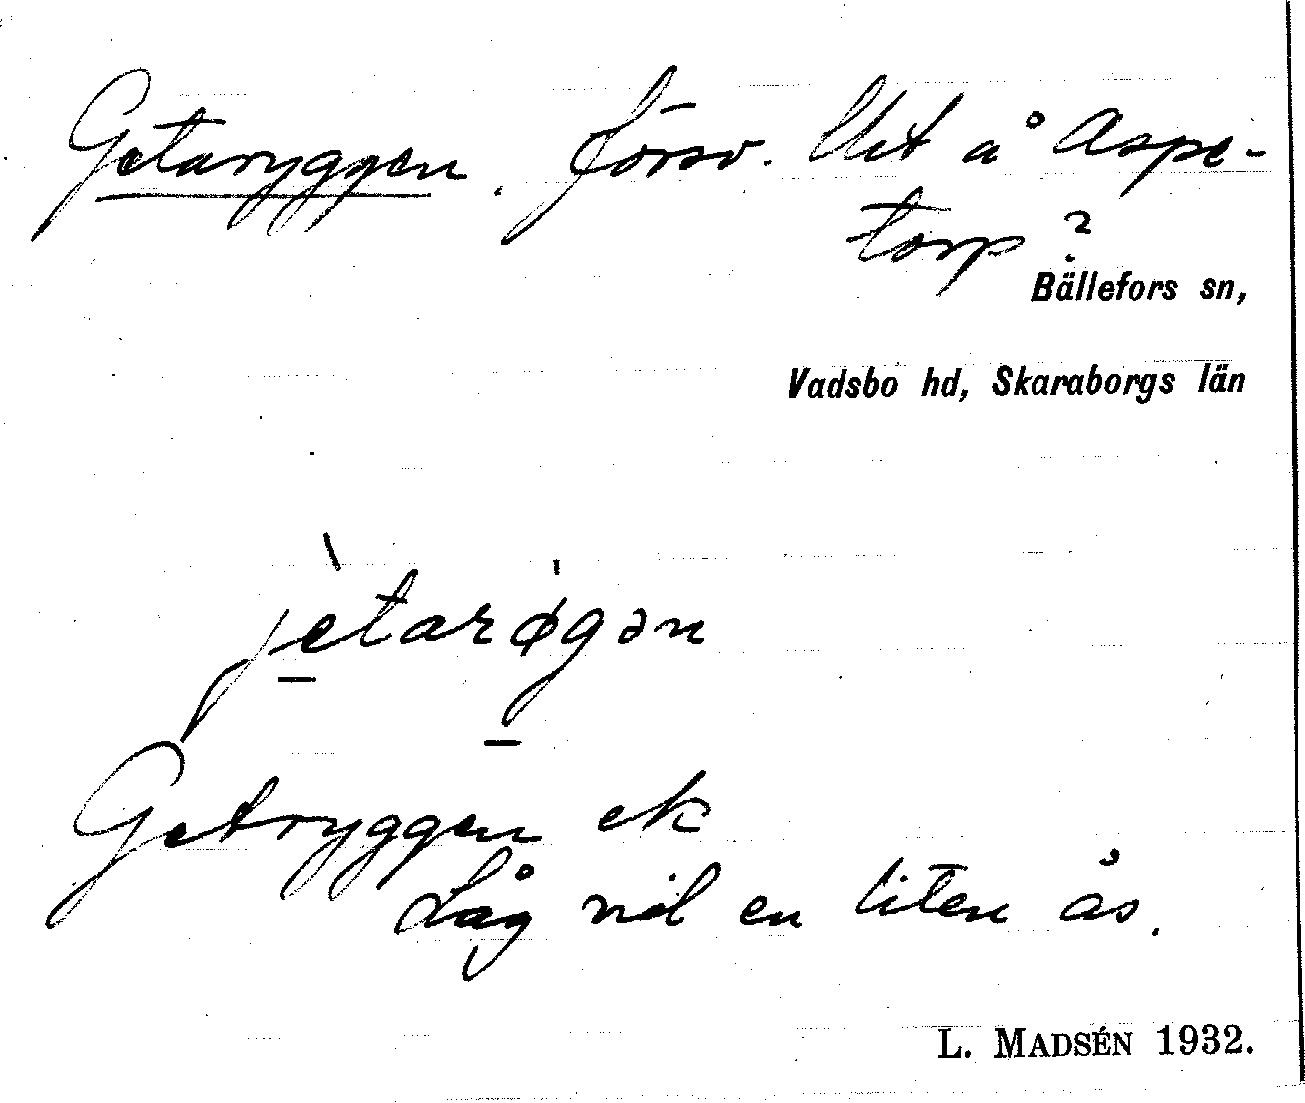 Getaryggen. Försv. Utt å Aspe-
torp?
Bällefors sn,
Vadsbo hd, Skaraborgs län
jètarøgən
Getryggen ek
Låg vid en liten ås.
L. MADSÉN 1932.